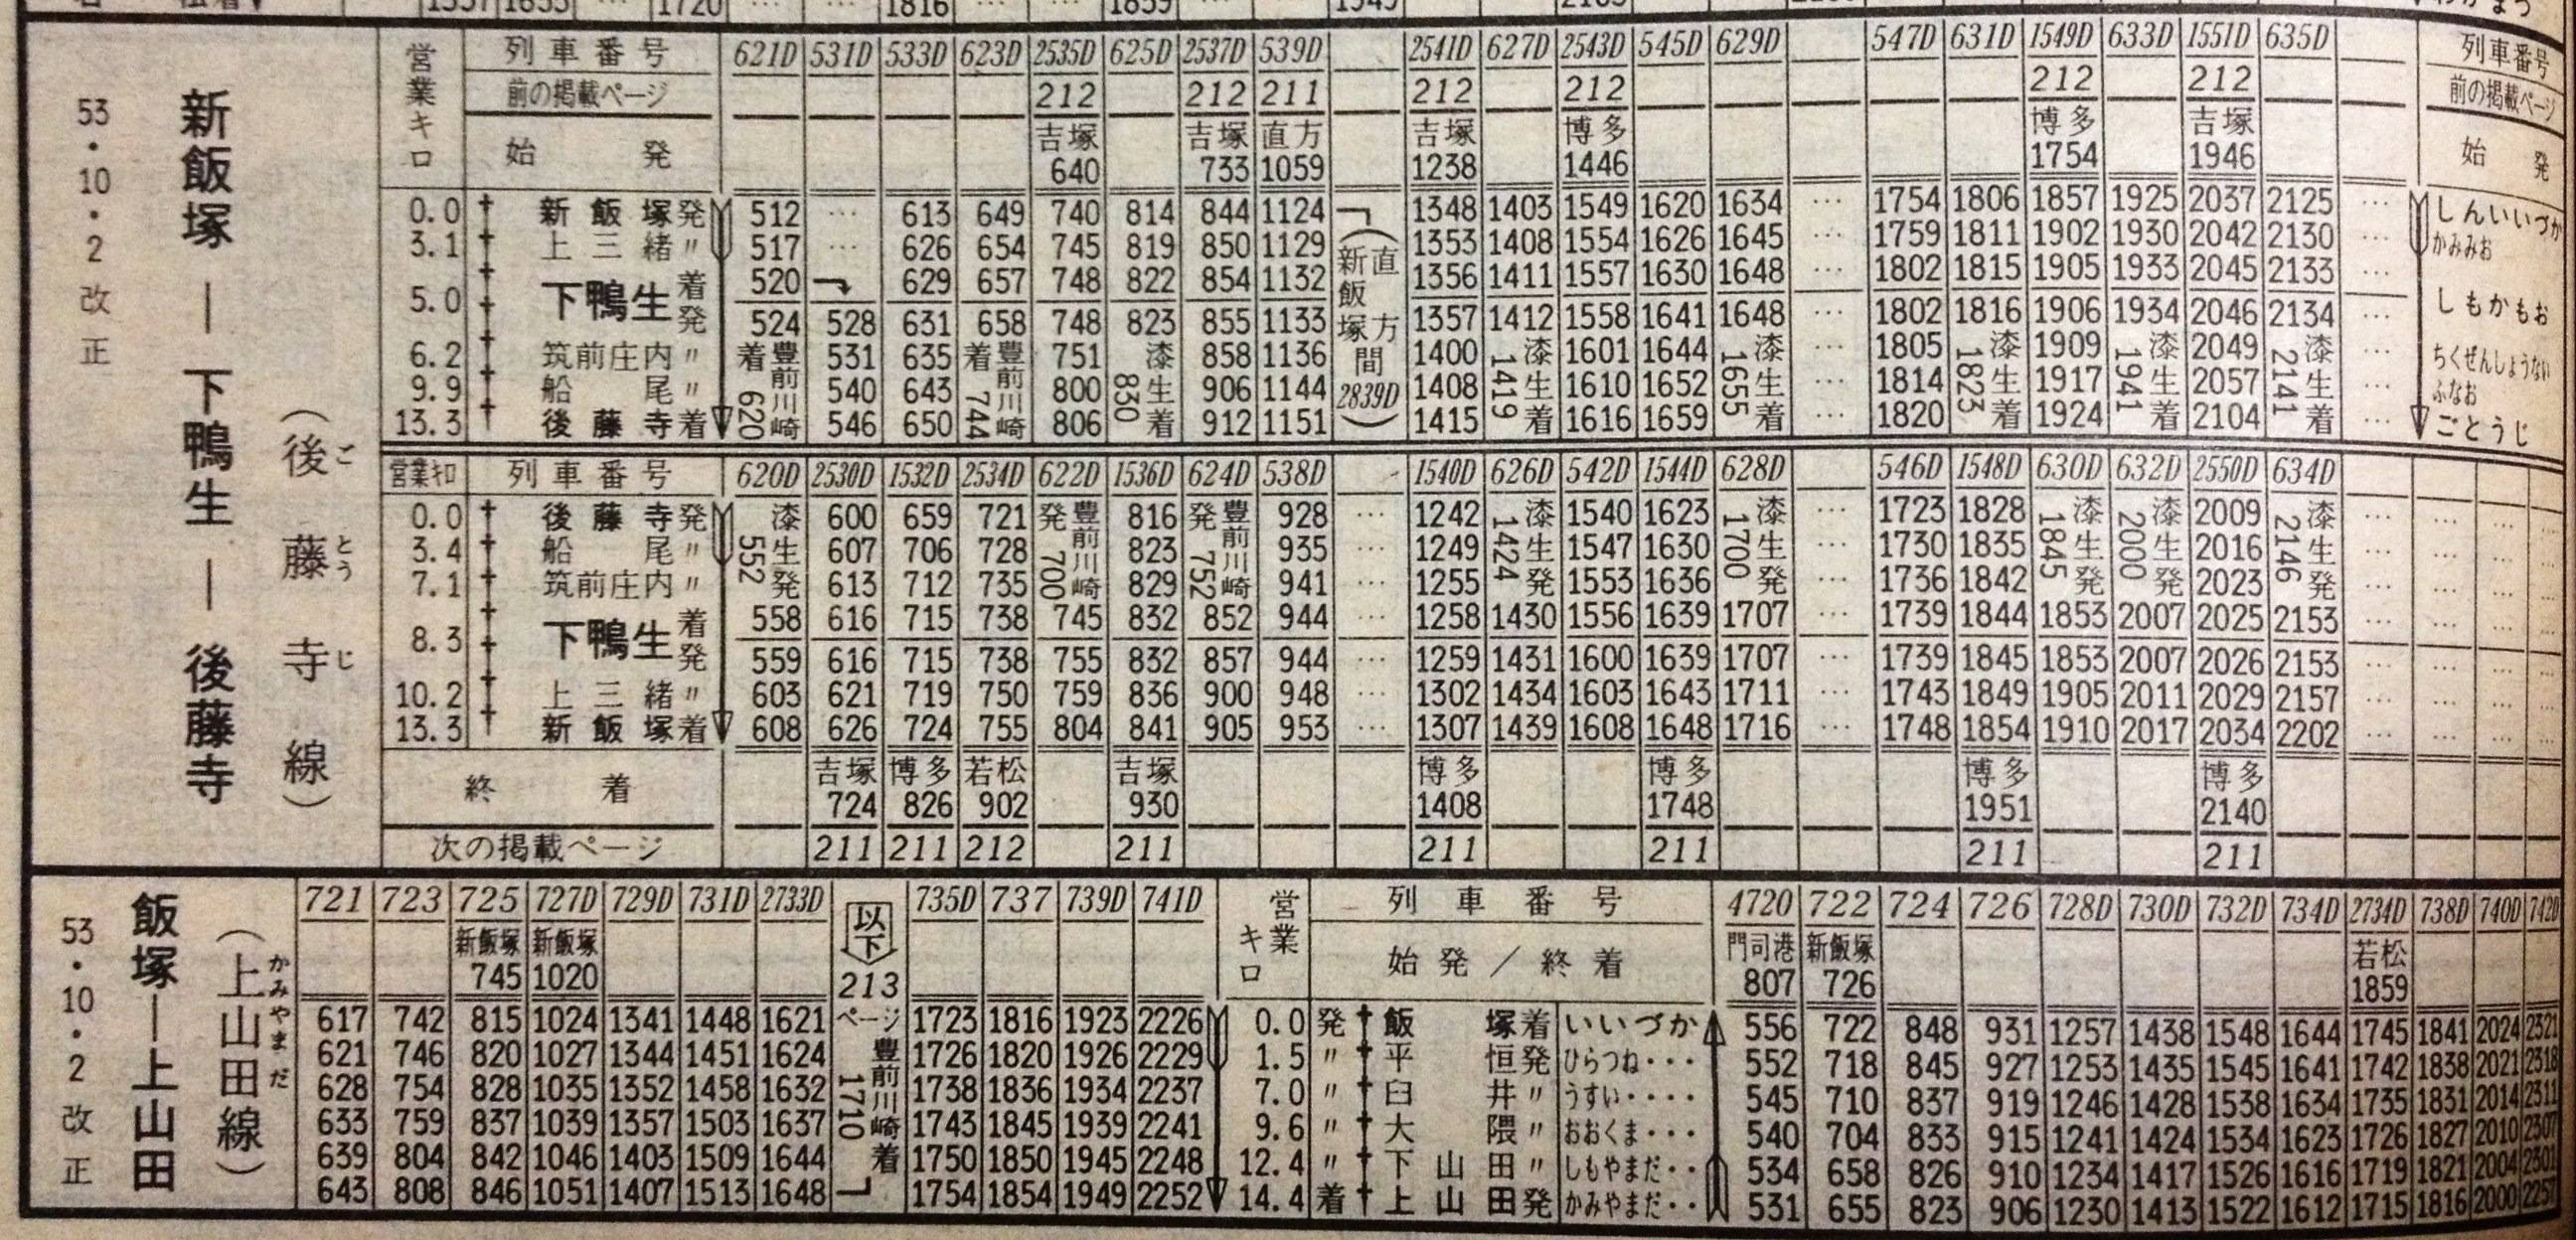 1357 1633 … 1720 … … 1816 … … 1859 … … 1949
53・10・2 改正
新飯塚 ― 下鴨生 ― 後藤寺
（後藤寺線）
ごとうじ
営業キロ 列車番号 621D 531D 533D 623D 2535D 625D 2537D 539D 2541D 627D 2543D 545D 629D 547D 631D 1549D 633D 1551D 635D 列車番号
前の掲載ページ 212 212 211 212 212 212 212 前の掲載ページ
始発 吉塚 吉塚 直方 吉塚 博多 博多 吉塚 始発
640 733 1059 1238 1446 1754 1946
0.0 新飯塚発 512 … 613 649 740 814 844 1124 1348 1403 1549 1620 1634 … 1754 1806 1857 1925 2037 2125 … しんいいづか
3.1 上三緒〃 517 … 626 654 745 819 850 1129 1353 1408 1554 1626 1645 … 1759 1811 1902 1930 2042 2130 … かみみお
5.0 下鴨生着 520 629 657 748 822 854 1132 1356 1411 1557 1630 1648 … 1802 1815 1905 1933 2045 2133 … しもかもお
発 524 528 631 658 748 823 855 1133 1357 1412 1558 1641 1648 … 1802 1816 1906 1934 2046 2134 …
6.2 筑前庄内〃 531 635 751 858 1136 1400 1601 1644 … 1805 1909 2049 … ちくぜんしょうない
9.9 船尾〃 540 643 800 906 1144 1408 1610 1652 … 1814 1917 2057 … ふなお
13.3 後藤寺着 546 650 806 912 1151 1415 1616 1659 … 1820 1924 2104 … ごとうじ
豊前川崎着 620
豊前川崎着 744
漆生着 830
（新飯塚 直方間 2839D）
漆生着 1419
漆生着 1655
漆生着 1823
漆生着 1941
漆生着 2141
営業キロ 列車番号 620D 2530D 1532D 2534D 622D 1536D 624D 538D … 1540D 626D 542D 1544D 628D 546D 1548D 630D 632D 2550D 634D
0.0 後藤寺発 600 659 721 816 928 … 1242 1540 1623 … 1723 1828 2009 … … …
3.4 船尾〃 607 706 728 823 935 … 1249 1547 1630 … 1730 1835 2016 … … …
7.1 筑前庄内〃 613 712 735 829 941 … 1255 1553 1636 … 1736 1842 2023 … … …
漆生発 552
豊前川崎発 700
豊前川崎発 752
漆生発 1424
漆生発 1700
漆生発 1845
漆生発 2000
漆生発 2146
8.3 下鴨生着 558 616 715 738 745 832 852 944 … 1258 1430 1556 1639 1707 … 1739 1844 1853 2007 2025 2153 … … …
発 559 616 715 738 755 832 857 944 … 1259 1431 1600 1639 1707 … 1739 1845 1853 2007 2026 2153 … … …
10.2 上三緒〃 603 621 719 750 759 836 900 948 … 1302 1434 1603 1643 1711 … 1743 1849 1905 2011 2029 2157 … … …
13.3 新飯塚着 608 626 724 755 804 841 905 953 … 1307 1439 1608 1648 1716 … 1748 1854 1910 2017 2034 2202 … … …
終着 吉塚 博多 若松 吉塚 博多 博多 博多 博多
724 826 902 930 1408 1748 1951 2140
次の掲載ページ 211 211 212 211 211 211 211 211
53・10・2 改正
飯塚―上山田
（上山田線）
かみやまだ
721 723 725 727D 729D 731D 2733D 以下 735D 737 739D 741D 営業キロ 列車番号 4720 722 724 726 728D 730D 732D 734D 2734D 738D 740D 742D
新飯塚 新飯塚 始発／終着 門司港 新飯塚 若松
745 1020 213 807 726 1859
617 742 815 1024 1341 1448 1621 ページ 1723 1816 1923 2226 0.0 発 飯塚着 いいづか 556 722 848 931 1257 1438 1548 1644 1745 1841 2024 2321
621 746 820 1027 1344 1451 1624 1726 1820 1926 2229 1.5 〃 平恒発 ひらつね・・・ 552 718 845 927 1253 1435 1545 1641 1742 1838 2021 2318
628 754 828 1035 1352 1458 1632 1738 1836 1934 2237 7.0 〃 臼井〃 うすい・・・・ 545 710 837 919 1246 1428 1538 1634 1735 1831 2014 2311
633 759 837 1039 1357 1503 1637 1743 1845 1939 2241 9.6 〃 大隈〃 おおくま・・・ 540 704 833 915 1241 1424 1534 1623 1726 1827 2010 2307
639 804 842 1046 1403 1509 1644 1750 1850 1945 2248 12.4 〃 下山田〃 しもやまだ・・ 534 658 826 910 1234 1417 1526 1616 1719 1821 2004 2301
643 808 846 1051 1407 1513 1648 1754 1854 1949 2252 14.4 着 上山田発 かみやまだ・・ 531 655 823 906 1230 1413 1522 1612 1715 1816 2000 2257
豊前川崎着 1710